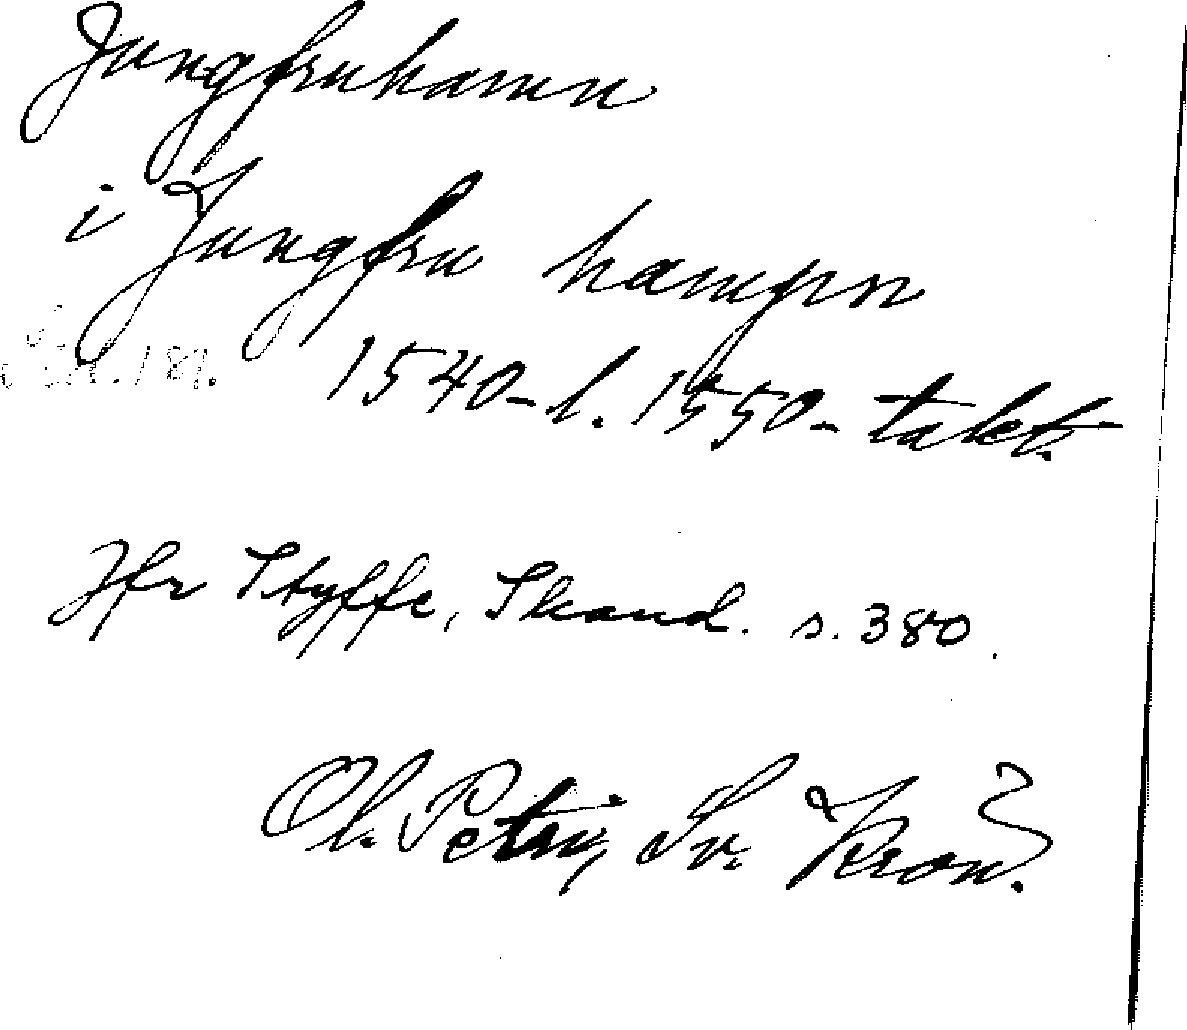 Jungfruhamn
i Jungfru hampn
1540- l. 1550-talet.
Jfr Styffe, Skand. s. 380.
Ol. Petri, Sv. Krön.